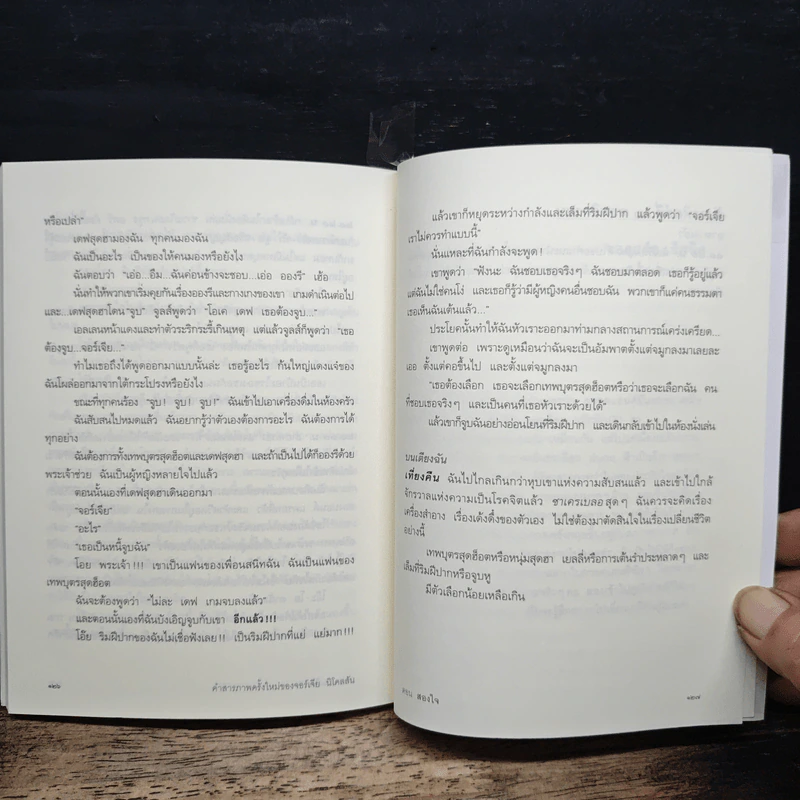 หรือเปล่า"
เดฟสุดฮามองฉัน ทุกคนมองฉัน
ฉันเป็นอะไร เป็นของให้คนมองหรือยังไง
ฉันตอบว่า "เอ่อ...อืม...ฉันค่อนข้างจะชอบ...เอ่อ อองรี" เฮ้อ
นั่นทำให้พวกเขาเริ่มคุยกันเรื่องอองรีและกางเกงของเขา เกมดำเนินต่อไป
และ...เดฟสุดฮาโดน "จูบ" จูลส์พูดว่า "โอเค เดฟ เธอต้องจูบ..."
เอลเลนหน้าแดงและทำตัวระริกระรี้เกินเหตุ แต่แล้วจูลส์ก็พูดว่า "เธอ
ต้องจูบ...จอร์เจีย..."
ทำไมเธอถึงได้พูดออกมาแบบนั้นล่ะ เธอรู้อะไร ก้นใหญ่แดงแจ๋ของ
ฉันโผล่ออกมาจากใต้กระโปรงหรือยังไง
ขณะที่ทุกคนร้อง "จูบ! จูบ! จูบ!" ฉันเข้าไปเอาเครื่องดื่มในห้องครัว
ฉันสับสนไปหมดแล้ว ฉันอยากรู้ว่าตัวเองต้องการอะไร ฉันต้องการได้
ทุกอย่าง
ฉันต้องการทั้งเทพบุตรสุดฮ็อตและเดฟสุดฮา และถ้าเป็นไปได้ก็อองรีด้วย
พระเจ้าช่วย ฉันเป็นผู้หญิงหลายใจไปแล้ว
ตอนนั้นเองที่เดฟสุดฮาเดินออกมา
"จอร์เจีย"
"อะไร"
"เธอเป็นหนี้จูบฉัน"
โอย พระเจ้า!!! เขาเป็นแฟนของเพื่อนสนิทฉัน ฉันเป็นแฟนของ
เทพบุตรสุดฮ็อต
ฉันจะต้องพูดว่า "ไม่ละ เดฟ เกมจบลงแล้ว"
และตอนนั้นเองที่ฉันบังเอิญจูบกับเขา อีกแล้ว!!!
โอ๊ย ริมฝีปากของฉันไม่เชื่อฟังเลย!! เป็นริมฝีปากที่แย่ แย่มาก!!!
คำสารภาพครั้งใหม่ของจอร์เจีย นิโคลสัน
แล้วเขาก็หยุดระหว่างกำลังและเล็มที่ริมฝีปาก แล้วพูดว่า "จอร์เจีย
เราไม่ควรทำแบบนี้"
นั่นแหละที่ฉันกำลังจะพูด!
เขาพูดว่า "ฟังนะ ฉันชอบเธอจริงๆ ฉันชอบมาตลอด เธอก็รู้อยู่แล้ว
แต่ฉันไม่ใช่คนโง่ และเธอก็รู้ว่ามีผู้หญิงคนอื่นชอบฉัน พวกเขาก็แค่คนธรรมดา
เธอเห็นฉันเต้นแล้ว..."
ประโยคนั้นทำให้ฉันหัวเราะออกมาท่ามกลางสถานการณ์เคร่งเครียด...
เขาพูดต่อ เพราะดูเหมือนว่าฉันจะเป็นอัมพาตตั้งแต่จมูกลงมาเลยละ
เออ ตั้งแต่คอขึ้นไป และตั้งแต่จมูกลงมา
"เธอต้องเลือก เธอจะเลือกเทพบุตรสุดฮ็อตหรือว่าเธอจะเลือกฉัน คน
ที่ชอบเธอจริงๆ และเป็นคนที่เธอหัวเราะด้วยได้"
แล้วเขาก็จูบฉันอย่างอ่อนโยนที่ริมฝีปาก และเดินกลับเข้าไปในห้องนั่งเล่น
บนเตียงฉัน
เที่ยงคืน ฉันไปไกลเกินกว่าหุบเขาแห่งความสับสนแล้ว และเข้าไปใกล้
จักรวาลแห่งความเป็นโรคจิตแล้ว ซาเครเบลอสุดๆ ฉันควรจะคิดเรื่อง
เครื่องสำอาง เรื่องเด้งดึ๋งของตัวเอง ไม่ใช่ต้องมาตัดสินใจในเรื่องเปลี่ยนชีวิต
อย่างนี้
เทพบุตรสุดฮ็อตหรือหนุ่มสุดฮา เยลลี่หรือการเต้นรำประหลาดๆ และ
เล็มที่ริมฝีปากหรือจูบหู
มีตัวเลือกน้อยเหลือเกิน
สองใจ